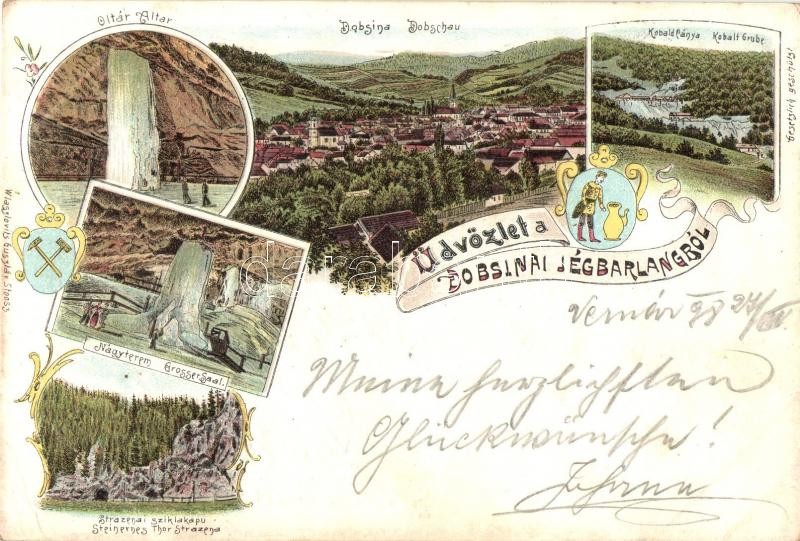 Oltár Altar
Dobsina Dobschau
Kobald Bánya Kobalt Grube
Üdvözlet a
DOBSINAI JÉGBARLANGBÓL
Nagyterem Grosser Saal.
Strazenai sziklakapu
Steinernes Thor Strazena
darabanth
Vernár 98 24/
Meine herzlichsten
Glückwünsche!
Johann